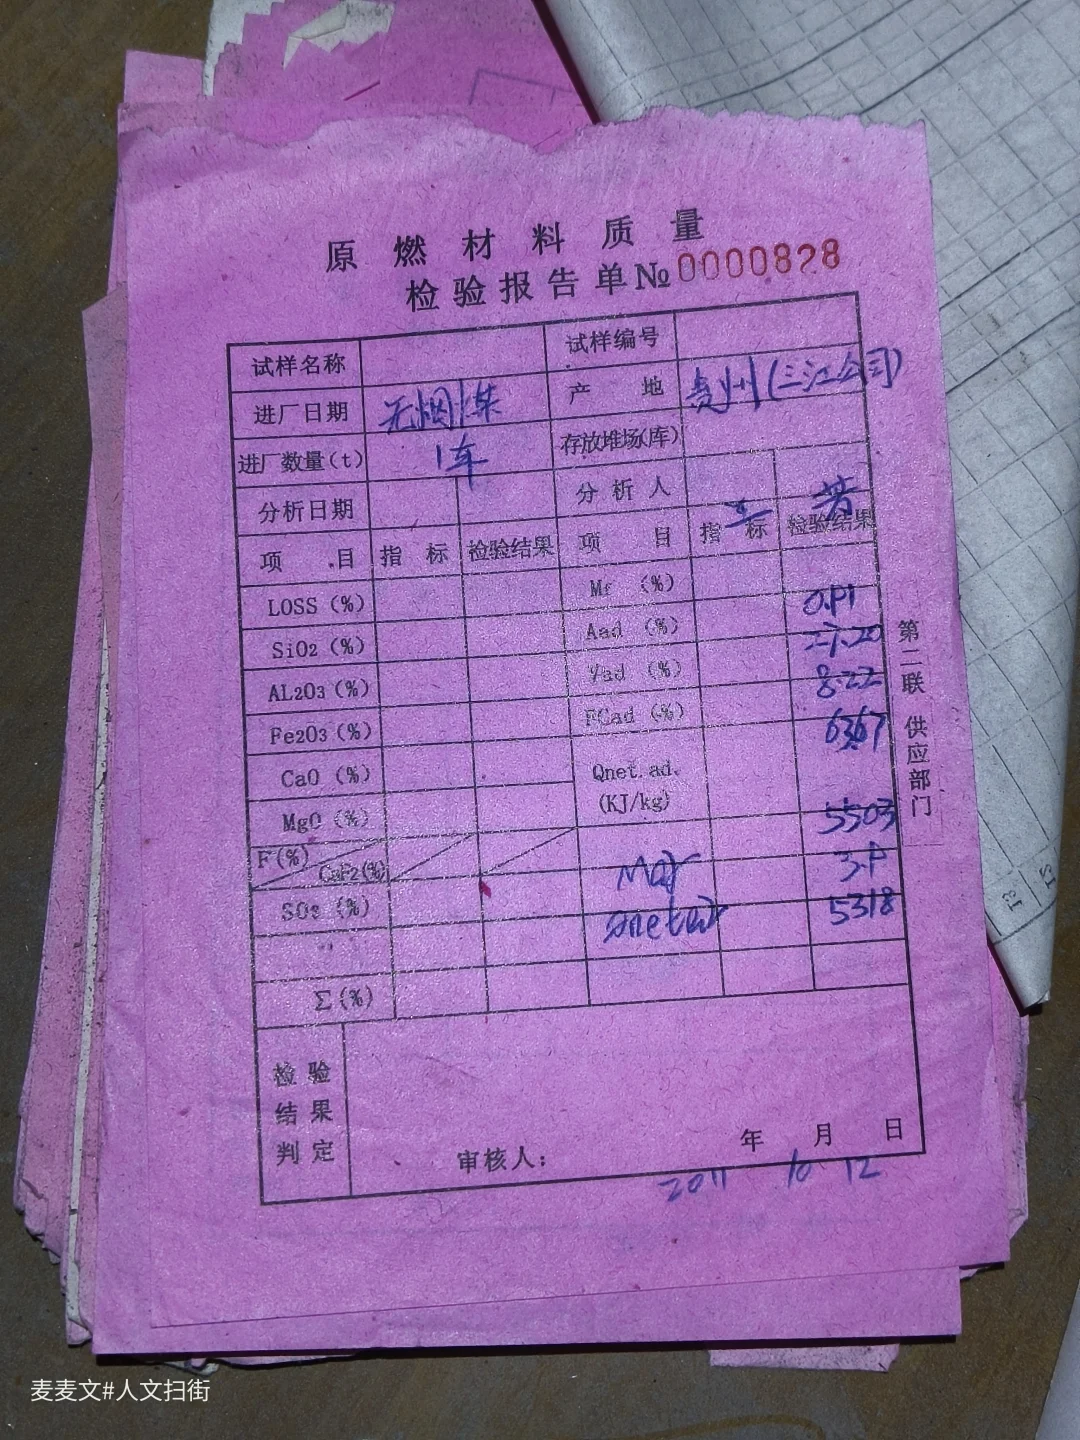 原燃材料质量
检验报告单 № 0000828
试样名称 试样编号
进厂日期 无烟煤 产地 贵州(三江公司)
进厂数量(t) 1车 存放堆场(库)
分析日期 分析人 芳
项目 指标 检验结果 项目 指标 检验结果
LOSS(%) Mt (%) 0.91
SiO2(%) Aad (%) 27.20
AL2O3(%) Vad (%) 8.22
Fe2O3(%) FCad (%) 63.67
CaO(%) Qnet.ad.
MgO(%) (KJ/kg) 5503
F(%) CaF2(%) Mar 3.9
SO3(%) Qnet ar 5318
Σ(%)
检验
结果
判定
审核人: 年 月 日
2011 10 12
第二联 供应部门
麦麦文#人文扫街